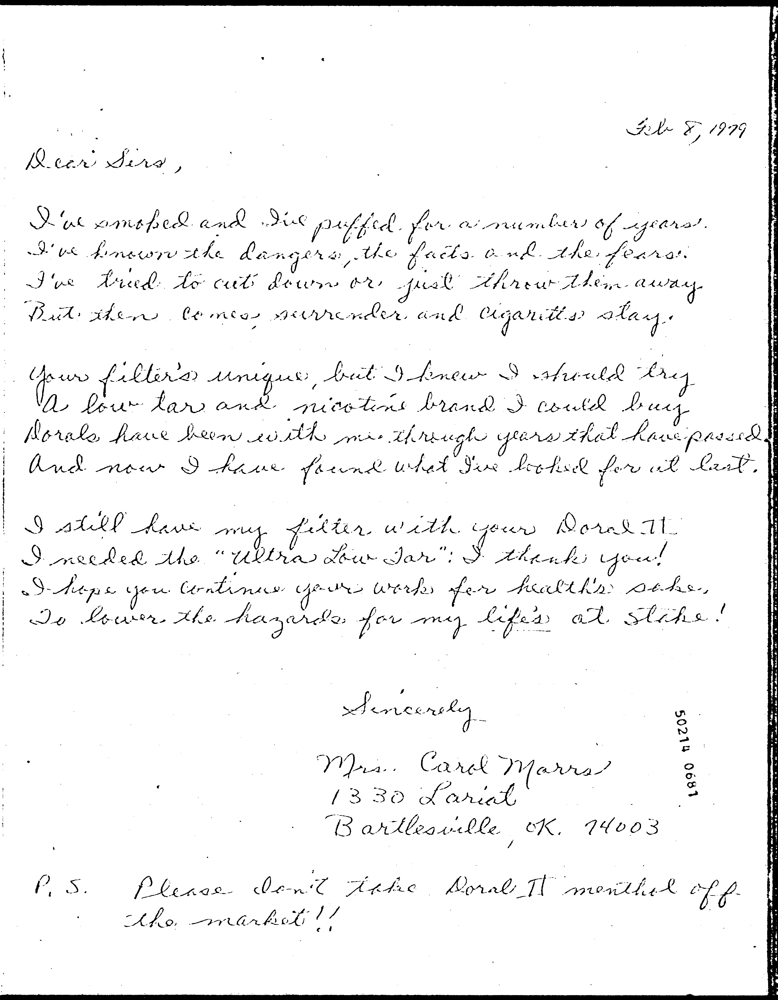 Feb 8, 1979
Dear Sirs,
I've smoked and I've puffed for a number of years.
I've known the dangers, the facts and the fears.
I've tried to cut down or just throw them away
But then comes surrender and cigaretts stay.
Your filter's unique, but I knew I should try
A low tar and nicotine brand I could buy
Dorals have been with me through years that have passed
And now I have found what I've looked for at last.
I still have my filter with your Doral II
I needed the "Ultra Low Tar": I thank you!
I hope you continue your work for health's sake,
To lower the hazards for my life's at stake!
Sincerely
Mrs. Carol Marrs
1330 Lariat
Bartlesville, OK. 74003
50214 0681
P.S. Please don't take Doral II menthol off
the market!!